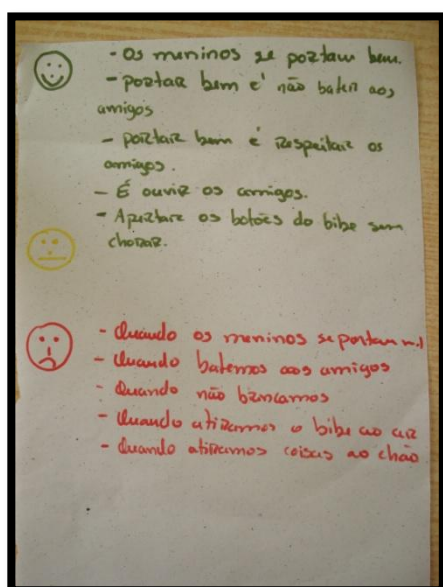 - Os meninos se portam bem.
- portar bem é não bater aos
amigos
- portar bem é respeitar os
amigos.
- É ouvir os amigos.
- Apertare os botões do bibe sem
chorar.
- Quando os meninos se portam mal
- Quando batemos aos amigos
- Quando não brincamos
- Quando atiramos o bibe ao ar
- Quando atiramos coisas ao chão